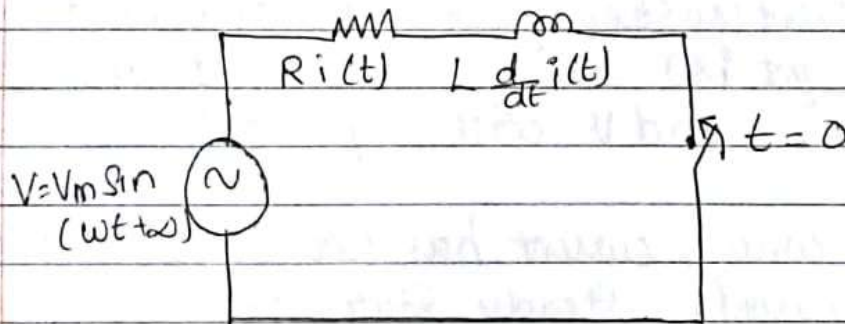 R i (t) L d/dt i(t)
t = 0
V = Vm Sin
(ωt + α)